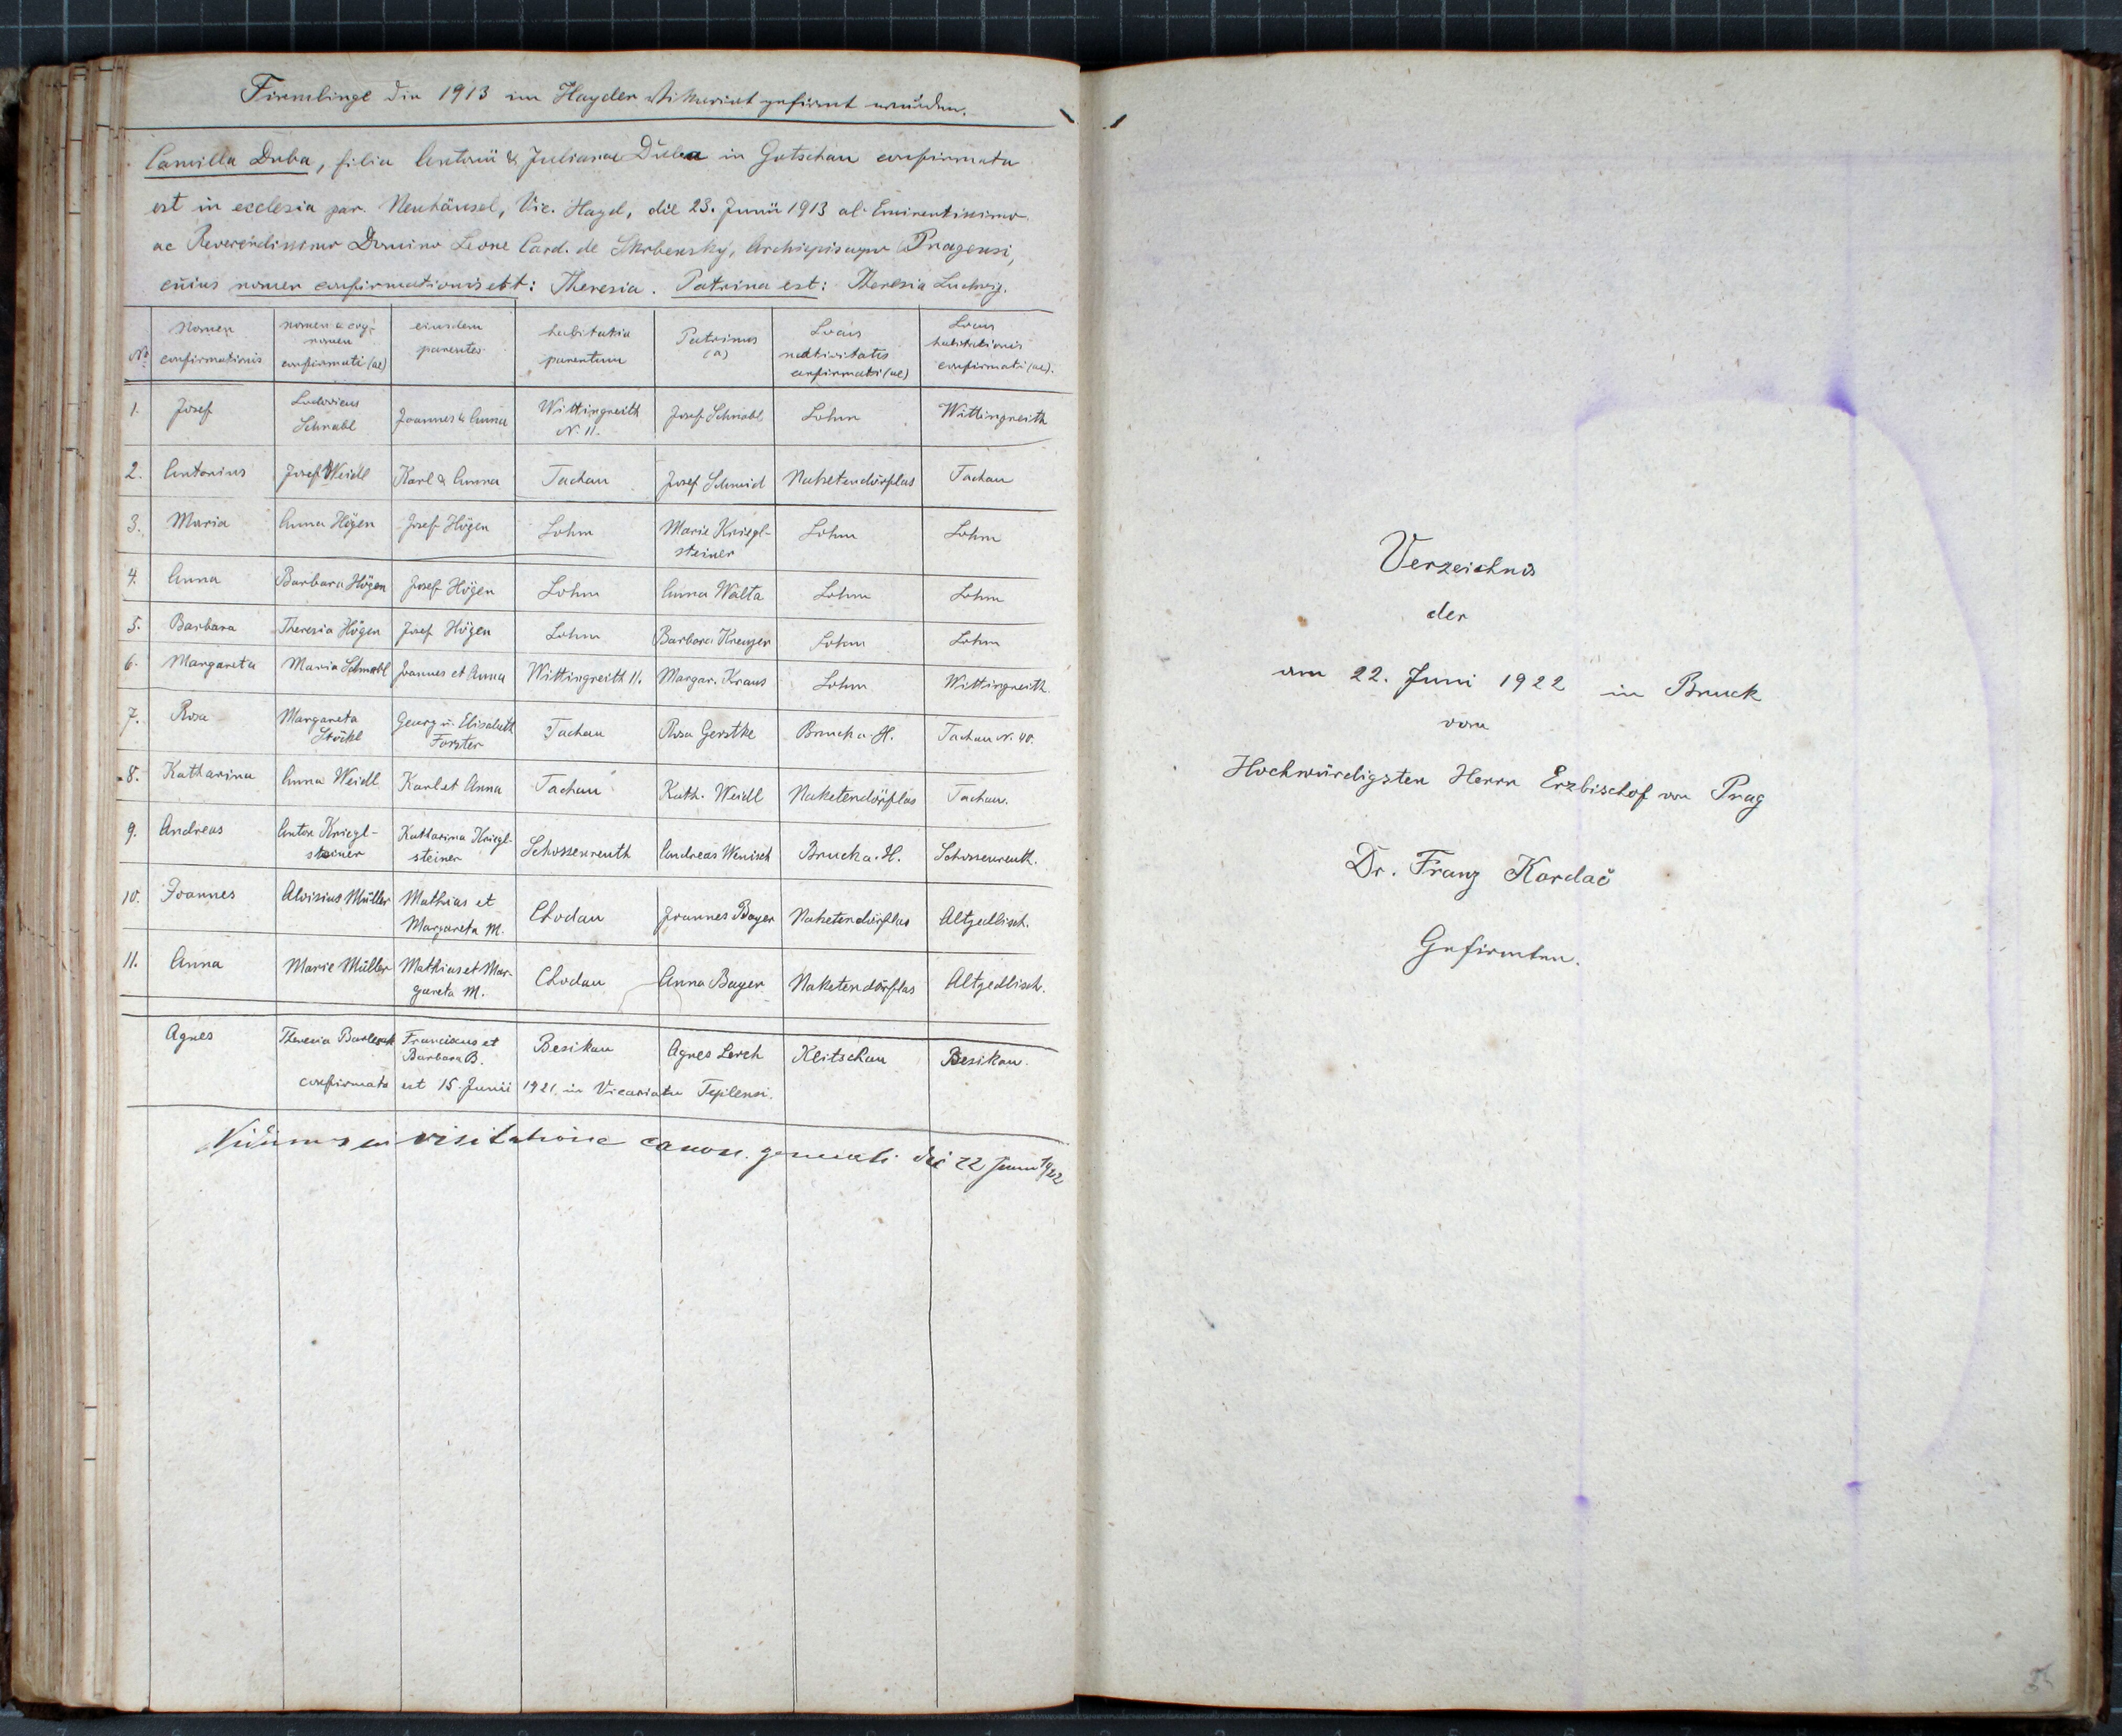 Firmlinge die 1913 im Hayder Vikariat gefirmt wurden.
Camilla Duba, filia Antonii & Julianae Duba in Gutschau confirmata
est in ecclesia par. Neuhäusel, Vic. Hayd, die 23. Junii 1913 ab Eminentissimo
ac Reverendissimo Domino Leone Card. de Skrbensky, Archiepiscopo Pragensi,
cuius nomen confirmationis est: Theresia. Patrina est: Theresia Ludwig.
No. Nomen confirmationis nomen a cog-nomen confirmati (ae) eiusdem parentes habitatio parentum Patrinus (a) Locus nativitatis confirmati (ae) Locus habitationis confirmati (ae).
1. Josef Ludovicus Schnabl Joannes & Anna Wittingreith N. 11. Josef Schnabl Lohm Wittingreith
2. Antonius Josef Weidl Karl & Anna Tachau Josef Schmid Naketendörflas Tachau
3. Maria Anna Högen Josef Högen Lohm Marie Kriegl-steiner Lohm Lohm
4. Anna Barbara Högen Josef Högen Lohm Anna Walta Lohm Lohm
5. Barbara Theresia Högen Josef Högen Lohm Barbara Kreuzer Lohm Lohm
6. Margareta Maria Schnabl Joannes et Anna Wittingreith 11. Margar. Kraus Lohm Wittingreith.
7. Rosa Margareta Stöckl Georg u. Elisabeth Forster Tachau Rosa Gerstke Bruck a. H. Tachau N. 40.
8. Katharina Anna Weidl Karl et Anna Tachau Kath. Weidl Naketendörflas Tachau.
9. Andreas Anton Kriegl-steiner Katharina Kriegl-steiner Schossenreuth Andreas Wenisch Bruck a. H. Schossenreuth.
10. Joannes Aloisius Müller Mathias et Margareta M. Chodau Joannes Bayer Naketendörflas Altzedlisch.
11. Anna Marie Müller Mathias et Mar-gareta M. Chodau Anna Bayer Naketendörflas Altzedlisch.
Agnes Theresia Franciscus et Barbara B. Besikau Agnes Lerch Kleitschau Besikau.
confirmata est 15. Junii 1921. in Vicariatu Teplensi.
Vidimus in visitatione canon. generali die 22 Junii 1922
Verzeichnis
der
am 22. Juni 1922 in Bruck
vom
Hochwürdigsten Herrn Erzbischof von Prag
Dr. Franz Kordač
Gefirmten.